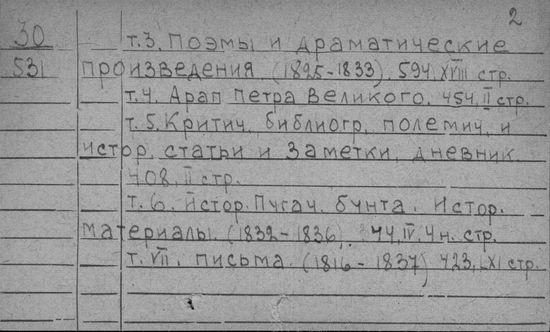 2
30 т.3. Поэмы и драматические
531 произведения. (1825-1833). 594, XVIII стр.
т.4. Арап Петра Великого. 454, II стр.
т.5. Критич. библиогр. полемич. и
истор. статьи и заметки. дневник.
408, II стр.
т.6. Истор. Пугач. бунта. Истор.
материалы. (1832-1836). 44, IV, 4н. стр.
т. VII. письма. (1816-1837) 423, LXI стр.